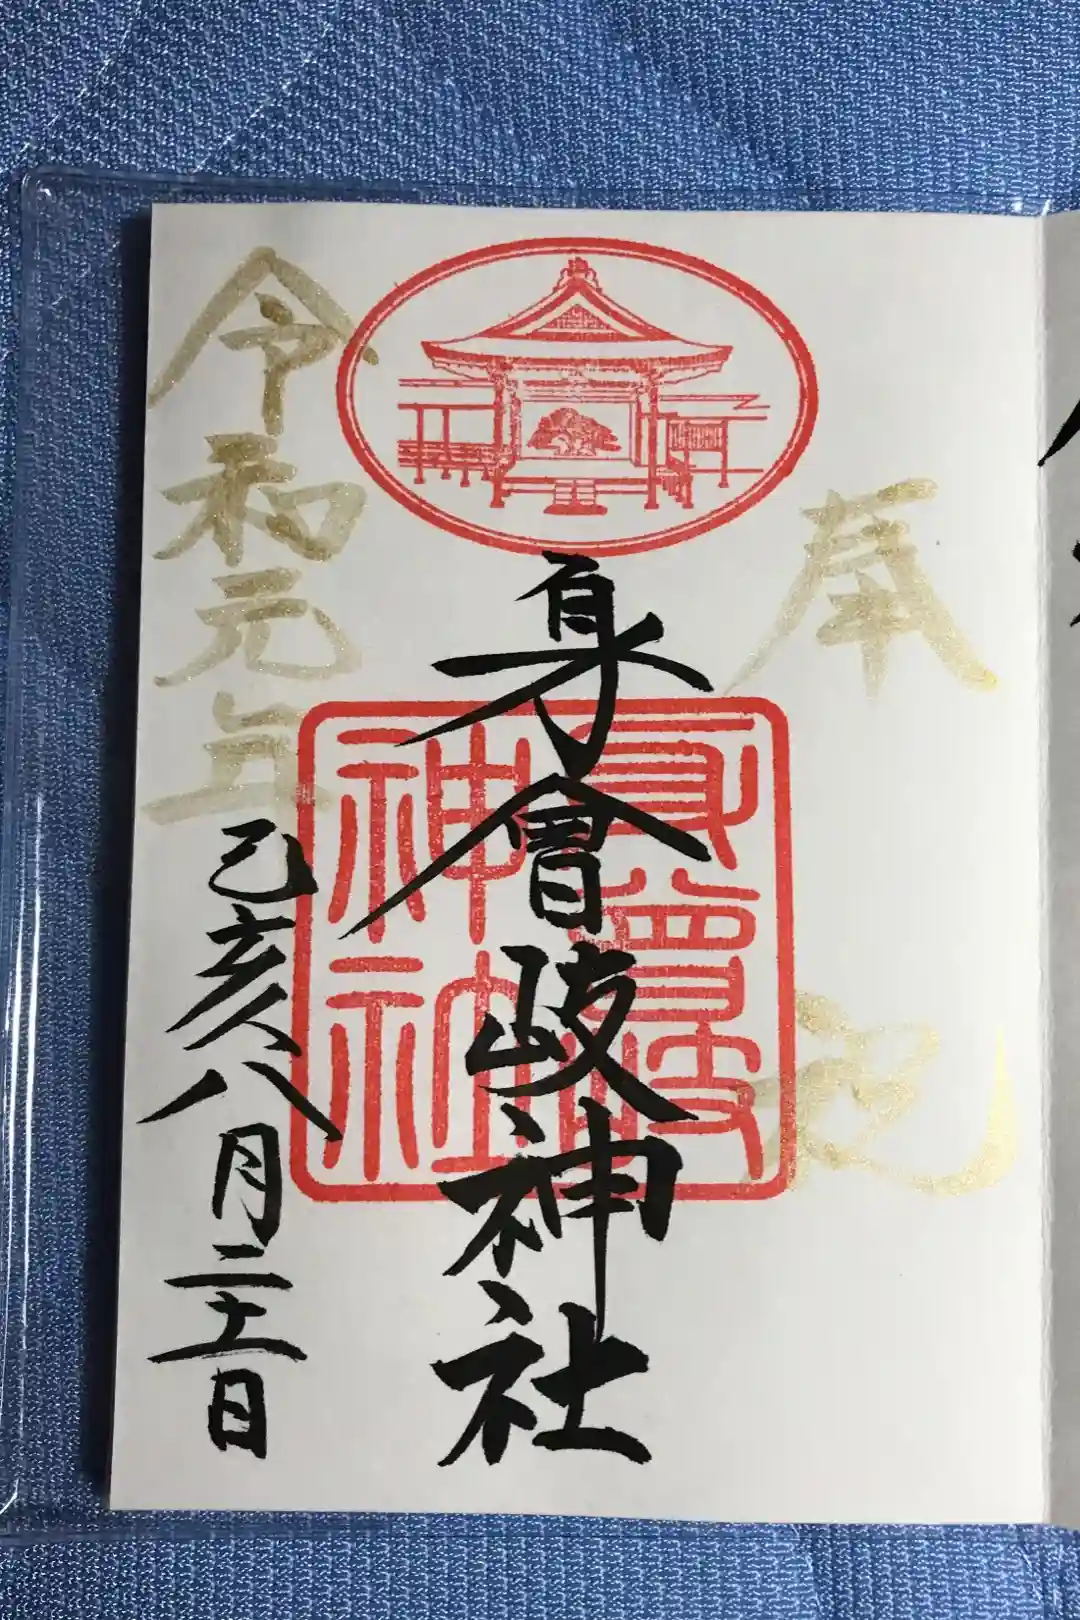 奉
身曾岐神社
身曾岐
神社
令和元年己亥八月二十一日